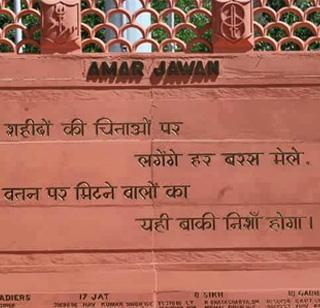 AMAR JAWAN
शहीदों की चिताओं पर
लगेंगे हर बरस मेले.
वतन पर मिटने वालों का
यही बाकी निशाँ होगा।
ADIERS 17 JAT 8 SIKH